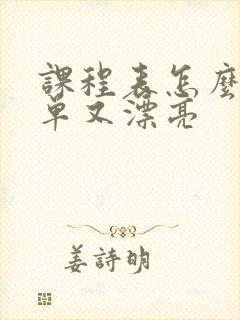 課程表怎麼
單又漂亮
姜詩明